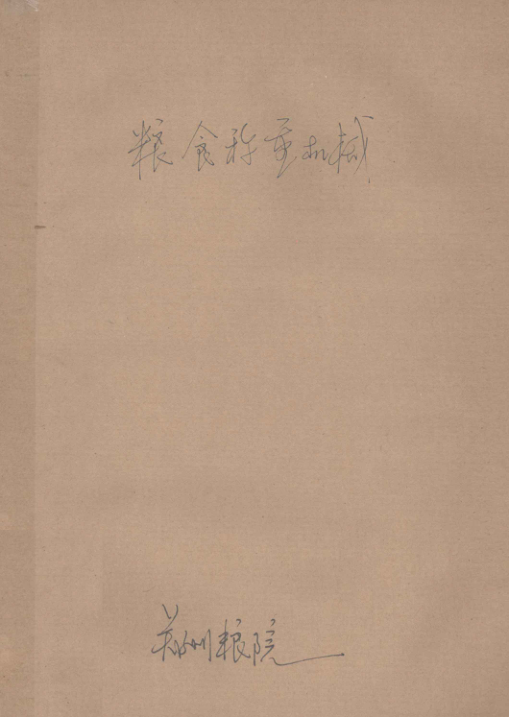 粮食称重机械
郑州粮院